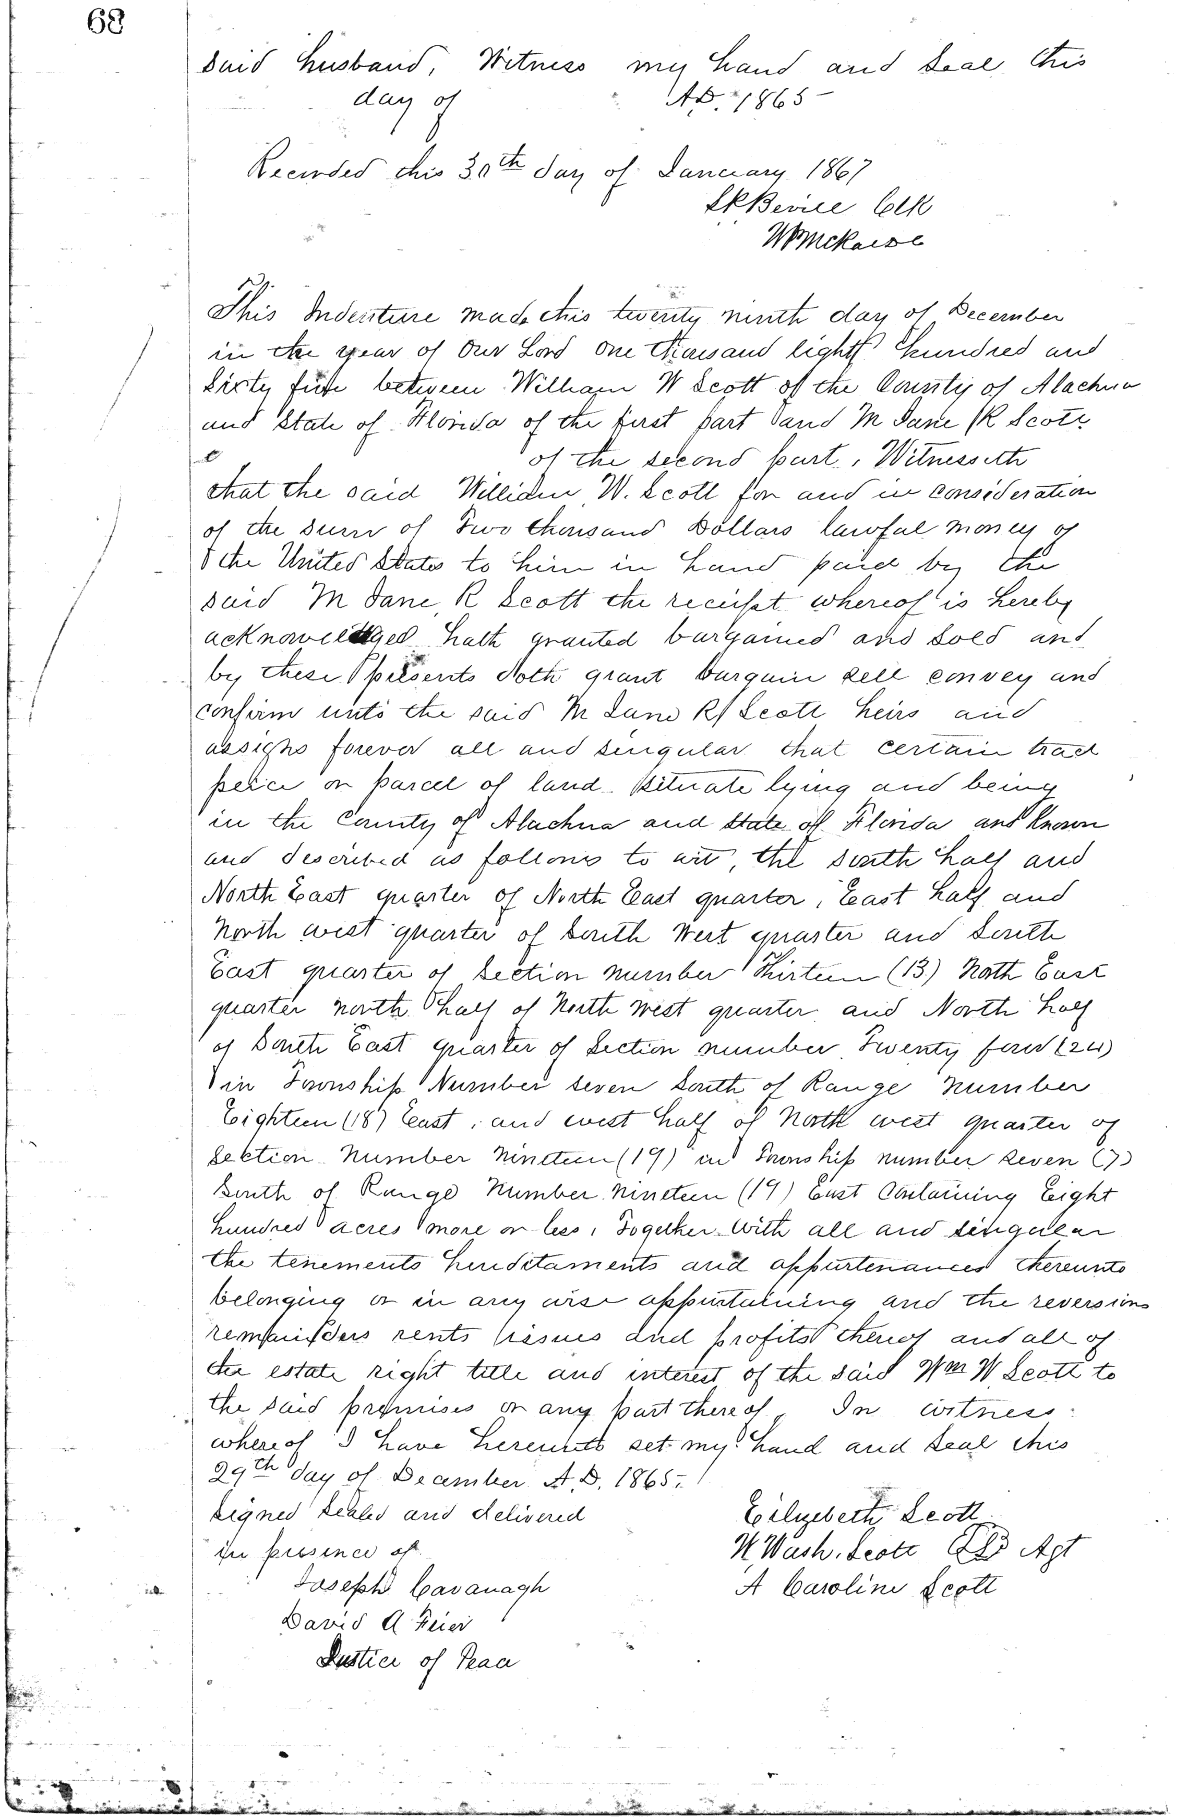 68
said husband, Witness my hand and seal this
day of A.D. 1865
Recorded this 30th day of January 1867
Clk
This Indenture made this twenty ninth day of December
in the year of Our Lord one thousand eight hundred and
Sixty five between William W Scott of the County of Alachua
and State of Florida of the first part and M Jane R Scott
of the second part, Witnesseth
that the said William W. Scott for and in consideration
of the sum of Two thousand Dollars lawful money of
the United States to him in hand paid by the
said M Jane R Scott the receipt whereof is hereby
acknowledged hath granted bargained and sold and
by these presents doth grant bargain sell convey and
confirm unto the said M Jane R Scott heirs and
assigns forever all and singular that certain tract
peice or parcel of land situate lying and being
in the County of Alachua and State of Florida and known
and described as follows to wit, the south half and
North East quarter of North East quarter, East half and
North west quarter of South West quarter and South
East quarter of Section number Thirteen (13) North East
quarter north half of North West quarter and North half
of South East quarter of Section number Twenty four (24)
in Township Number seven South of Range Number
Eighteen (18) East, and west half of North west quarter of
Section Number Nineteen (19) in Township number seven (7)
South of Range Number Nineteen (19) East Containing Eight
hundred acres more or less, Together With all and singular
the tenements hereditaments and appurtenances thereunto
belonging or in any wise appertaining and the reversions
remainders rents issues and profits thereof and all of
the estate right title and interest of the said Wm W Scott to
the said premises or any part thereof, In witness
whereof I have hereunto set my hand and seal this
29th day of December A.D. 1865.
Signed Sealed and delivered
in presence of
Joseph Cavanagh
David A
Justice of Peace
Elizebeth Scott
W. Wash. Scott Agt
A Caroline Scott